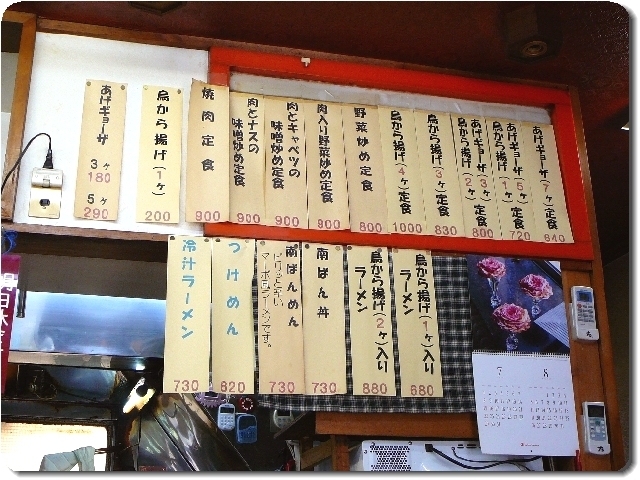 あげギョーザ(7ヶ)定食 840
あげギョーザ(5ヶ)
鳥から揚げ(1ヶ)定食 720
あげギョーザ(3ヶ)
鳥から揚げ(2ヶ)定食 800
鳥から揚げ(3ヶ)定食 830
鳥から揚げ(4ヶ)定食 1000
野菜炒め定食 800
肉入り野菜炒め定食 900
肉とキャベツの
味噌炒め定食 900
肉とナスの
味噌炒め定食 900
焼肉定食 900
鳥から揚げ(1ヶ) 200
あげギョーザ
3ヶ
180
5ヶ
290
鳥から揚げ(1ヶ)入り
ラーメン 680
鳥から揚げ(2ヶ)入り
ラーメン 880
南ばん丼 730
南ばんめん
ピリッと辛い
マーボラーメンです。 730
つけめん 820
冷汁ラーメン 730
7 8